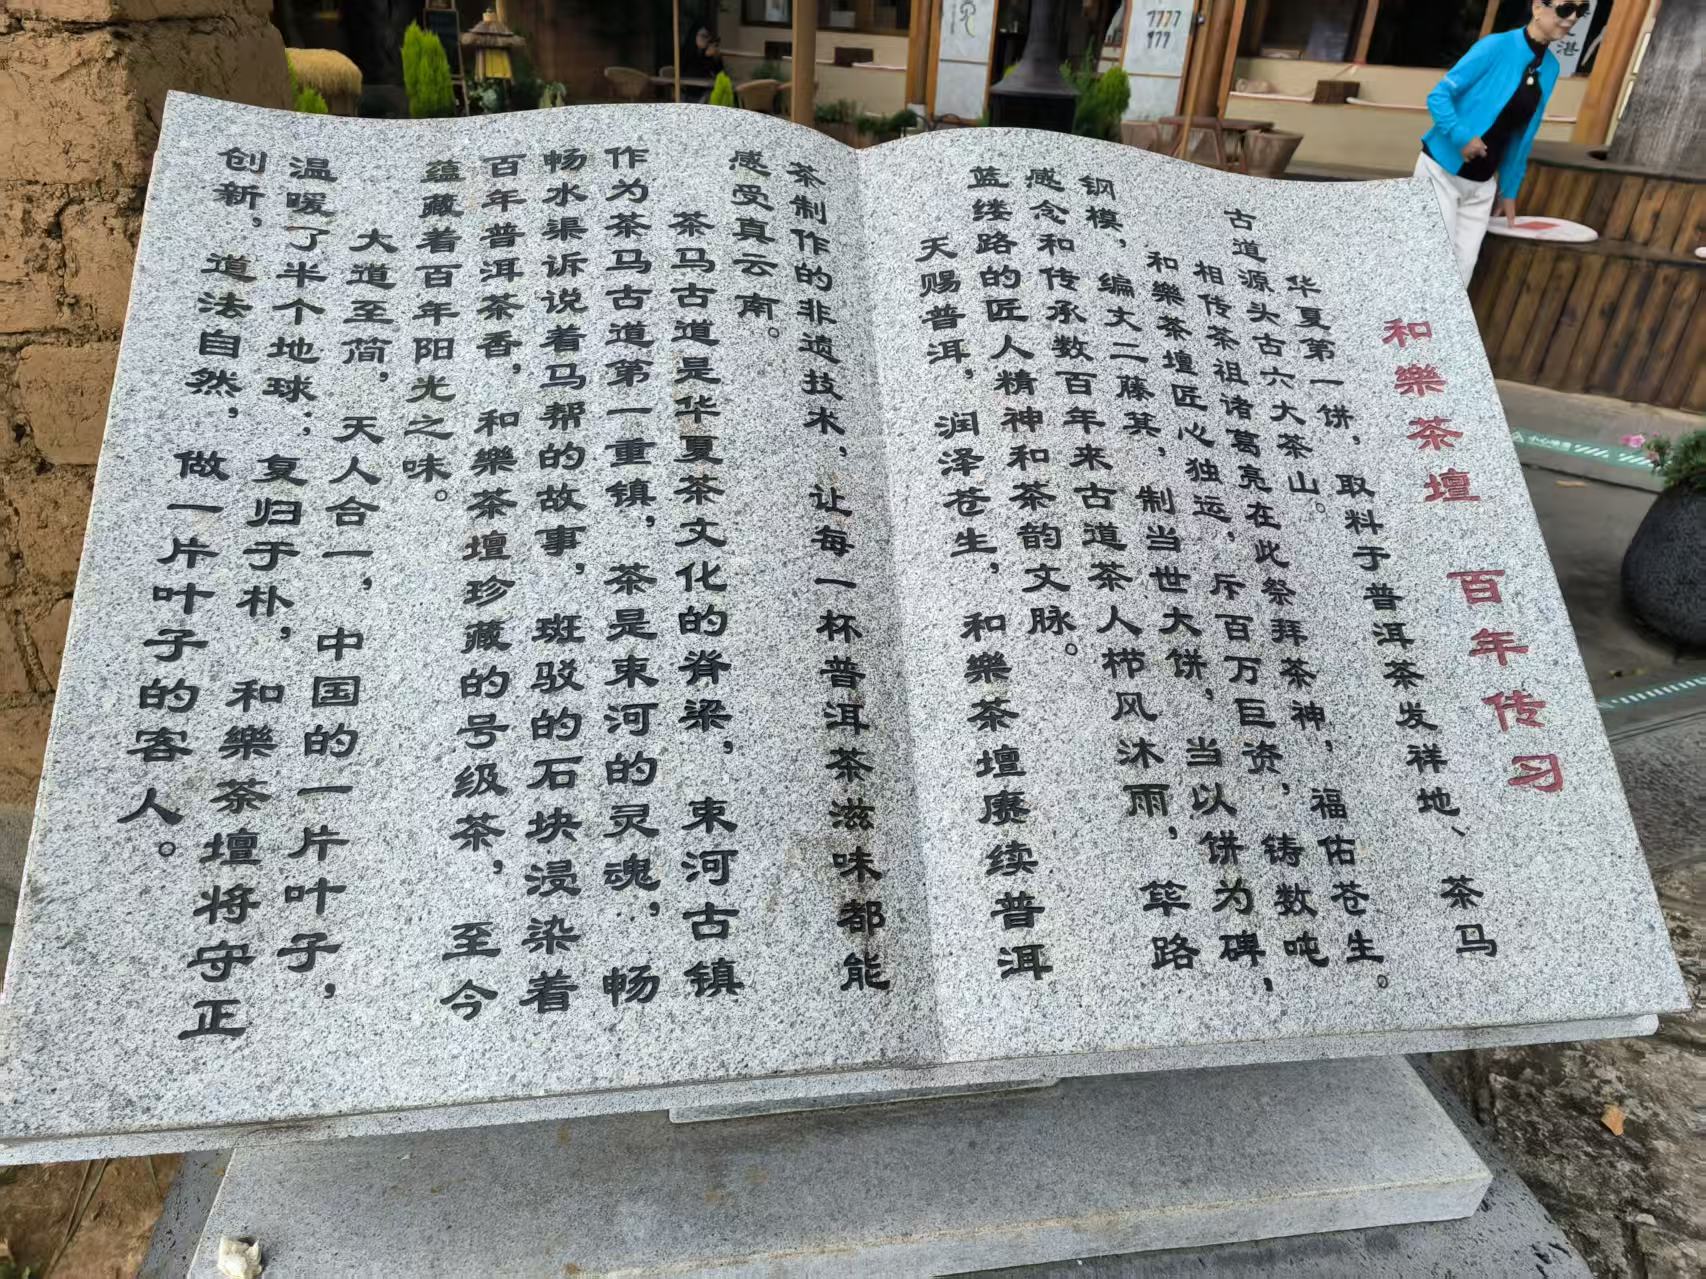 和樂茶壇 百年传习
华夏第一饼，取料于普洱茶发祥地、茶马
古道源头古六大茶山。
相传茶祖诸葛亮在此祭拜茶神，福佑苍生。
和樂茶壇匠心独运，斥百万巨资，铸数吨
钢模，编丈二藤萁，制当世大饼，当以饼为碑，
感念和传承数百年来古道茶人栉风沐雨，筚路
蓝缕路的匠人精神和茶韵文脉。
天赐普洱，润泽苍生，和樂茶壇赓续普洱
茶制作的非遗技术，让每一杯普洱茶滋味都能
感受真云南。
茶马古道是华夏茶文化的脊梁，束河古镇
作为茶马古道第一重镇，茶是束河的灵魂，畅
畅水渠诉说着马帮的故事，斑驳的石块浸染着
百年普洱茶香，和樂茶壇珍藏的号级茶，至今
蕴藏着百年阳光之味。
大道至简，天人合一，中国的一片叶子，
温暖了半个地球；复归于朴，和樂茶壇将守正
创新，道法自然，做一片叶子的客人。